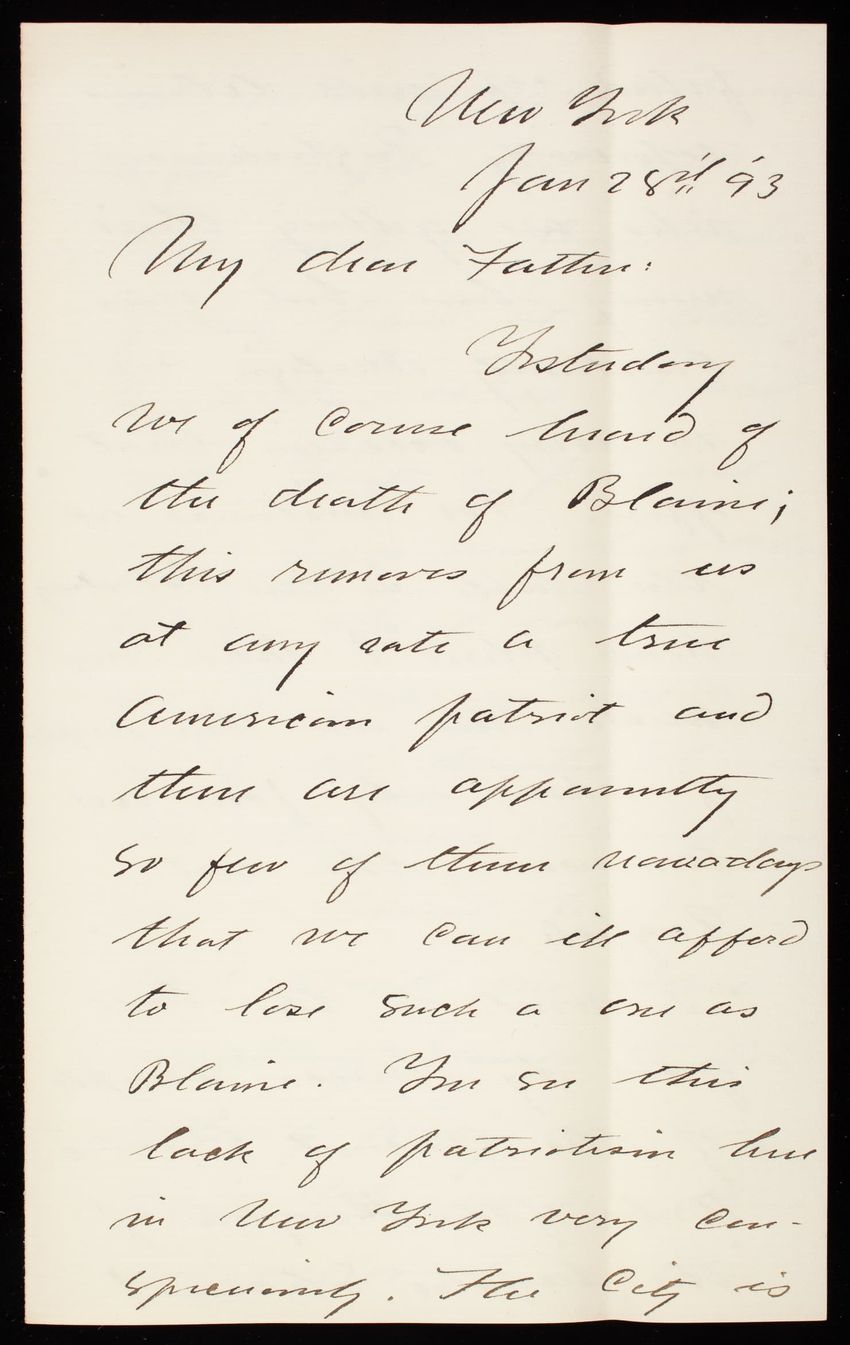 New York
Jan 28th '93
My dear Father:
Yesterday
we of course heard of
the death of Blaine;
this removes from us
at any rate a true
American patriot and
there are apparently
so few of them nowadays
that we can ill afford
to lose such a one as
Blaine. You see this
lack of patriotism here
in New York very con-
spicuously. The City is